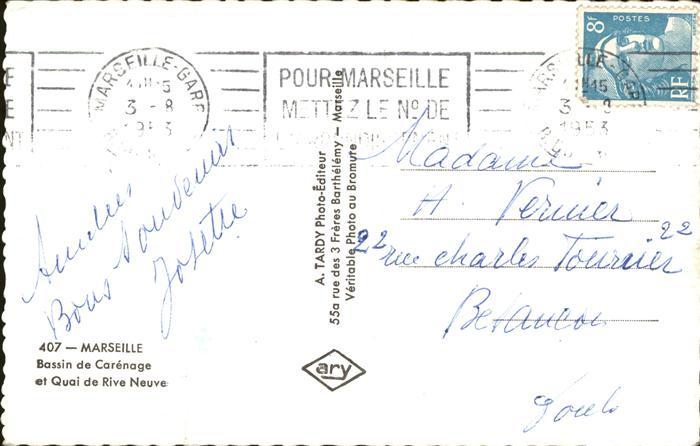 MARSEILLE-GARE
15
3 - 8
1953
POUR MARSEILLE
METTEZ LE No DE
8F
POSTES
RF
MARSEILLE-GARE
15
3 - 8
1953
Amitiés
Bons Souvenirs
Josette
407 — MARSEILLE
Bassin de Carénage
et Quai de Rive Neuve
A. TARDY Photo-Éditeur
55a rue des 3 Frères Barthélémy — Marseille
Véritable Photo au Bromure
ary
Madame
A. Vernier
22 rue Charles Tournier 22
Besancon
Doubs